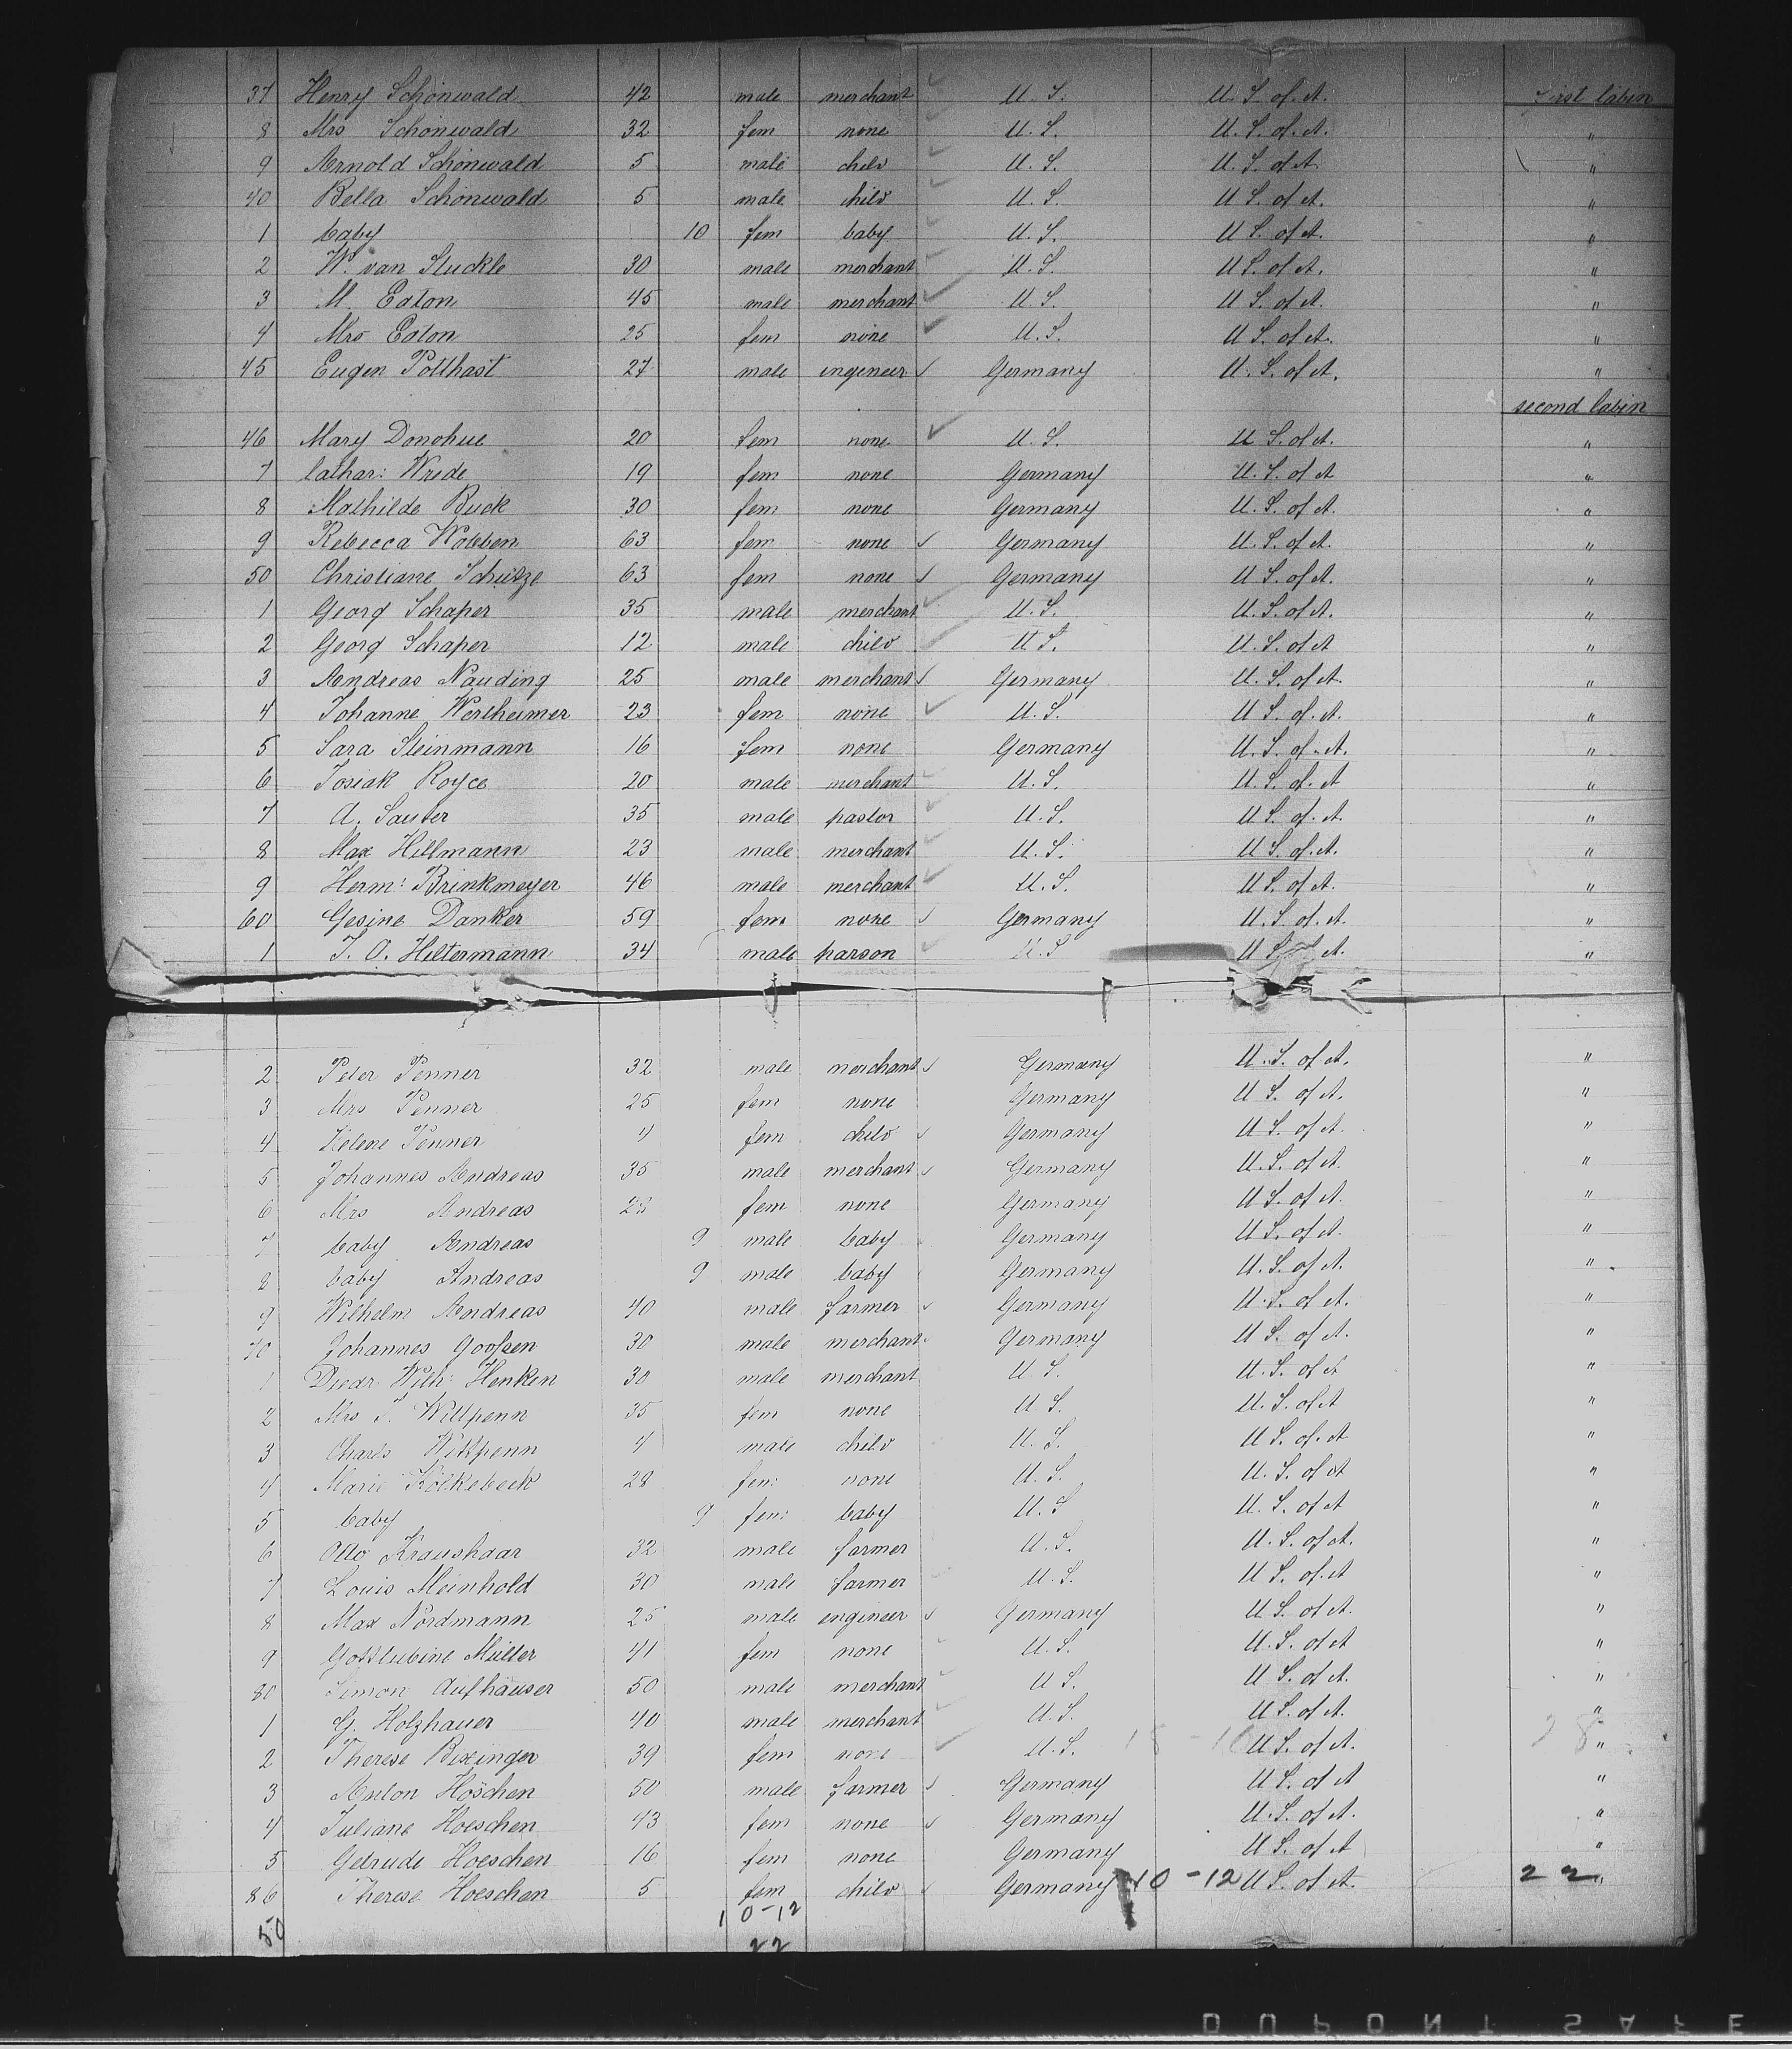 37 Henry Schönwald 42 male merchant U. S. U. S. of. A. First Cabin
8 Mrs Schönwald 32 fem none U. S. U. S. of. A. "
9 Arnold Schönwald 5 male child U. S. U. S. of A. "
40 Bella Schönwald 5 male child U. S. U S. of A. "
1 baby 10 fem baby U. S. U S. of A. "
2 W. van Stuckle 30 male merchant U. S. U S. of A. "
3 M. Eaton 45 male merchant U. S. U S. of A. "
4 Mrs Eaton 25 fem none U. S. U S. of A. "
45 Eugen Potthast 27 male engeneer Germany U. S. of A. "
second Cabin
46 Mary Donohue 20 fem none U. S. U S. of A. "
7 Cathar: Wrede 19 fem none Germany U. S. of A "
8 Mathilde Buck 30 fem none Germany U. S. of A. "
9 Rebecca Wobben 63 fem none Germany U. S. of A. "
50 Christiane Schütze 63 fem none Germany U S. of A. "
1 Georg Schaper 35 male merchant U. S. U. S. of A. "
2 Georg Schaper 12 male child U S. U. S. of A "
3 Andreas Nauding 25 male merchant Germany U. S. of A. "
4 Johanne Wertheimer 23 fem none U. S. U S. of. A. "
5 Sara Steinmann 16 fem none Germany U. S. of. A. "
6 Josiak Royce 20 male merchant U. S. U. S. of. A "
7 A. Sauter 35 male pastor U. S. U S. of. A. "
8 Max Hillmann 23 male merchant U. S. U S. of. A. "
9 Herm: Brinkmeyer 46 male merchant U. S. U S. of A. "
60 Gesine Danker 59 fem none Germany U. S. of. A. "
1 J. O. Hiltermann 34 male parson U. S U S A. "
2 Peter Penner 32 male merchant Germany U. S. of A. "
3 Mrs Penner 25 fem none Germany U S. of A. "
4 Helene Penner 4 fem child Germany U S. of A. "
5 Johannes Andreas 35 male merchant Germany U. S. of A. "
6 Mrs Andreas fem none Germany U S. of A. "
7 baby Andreas 9 male baby Germany U S. of A. "
8 baby Andreas 9 male baby Germany U. S. of A. "
9 Wilhelm Andreas 40 male farmer Germany U. S. of A. "
70 Johannes Goossen 30 male merchant Germany U S. of A. "
1 Diedr. Wilh: Henken 30 male merchant U S. U. S. of A "
2 Mrs J. Wittpenn 35 fem none U. S. U. S. of A "
3 Charls Wittpenn 4 male child U. S. U S. of. A "
4 Marie Kölkebeck 28 fem: none U. S. U. S. of A "
5 baby 9 fem: baby U. S U. S. of A "
6 Otto Kraushaar 32 male farmer U. S. U. S. of A. "
7 Louis Meinhold 30 male farmer U. S. U S. of. A "
8 Max Nordmann 25 male engineer Germany U S. of A. "
9 Gottliebine Müller 41 fem none U. S. U. S. of A "
80 Simon Aufhäuser 50 male merchant U S. U S. of A. "
1 G. Holzhauer 40 male merchant U. S. U S. of A. "
2 Therese Bixinger 39 fem none U. S. U S. of A. "
3 Anton Höschen 50 male farmer Germany U S. of A "
4 Juliane Hoeschen 43 fem none Germany U. S. of A. "
5 Getrude Hoeschen 16 fem none Germany U S. of A "
86 Therese Hoeschen 5 fem child Germany 10-12 U S. of A. 22 "
50 10-12
22
DUPONT SAFE